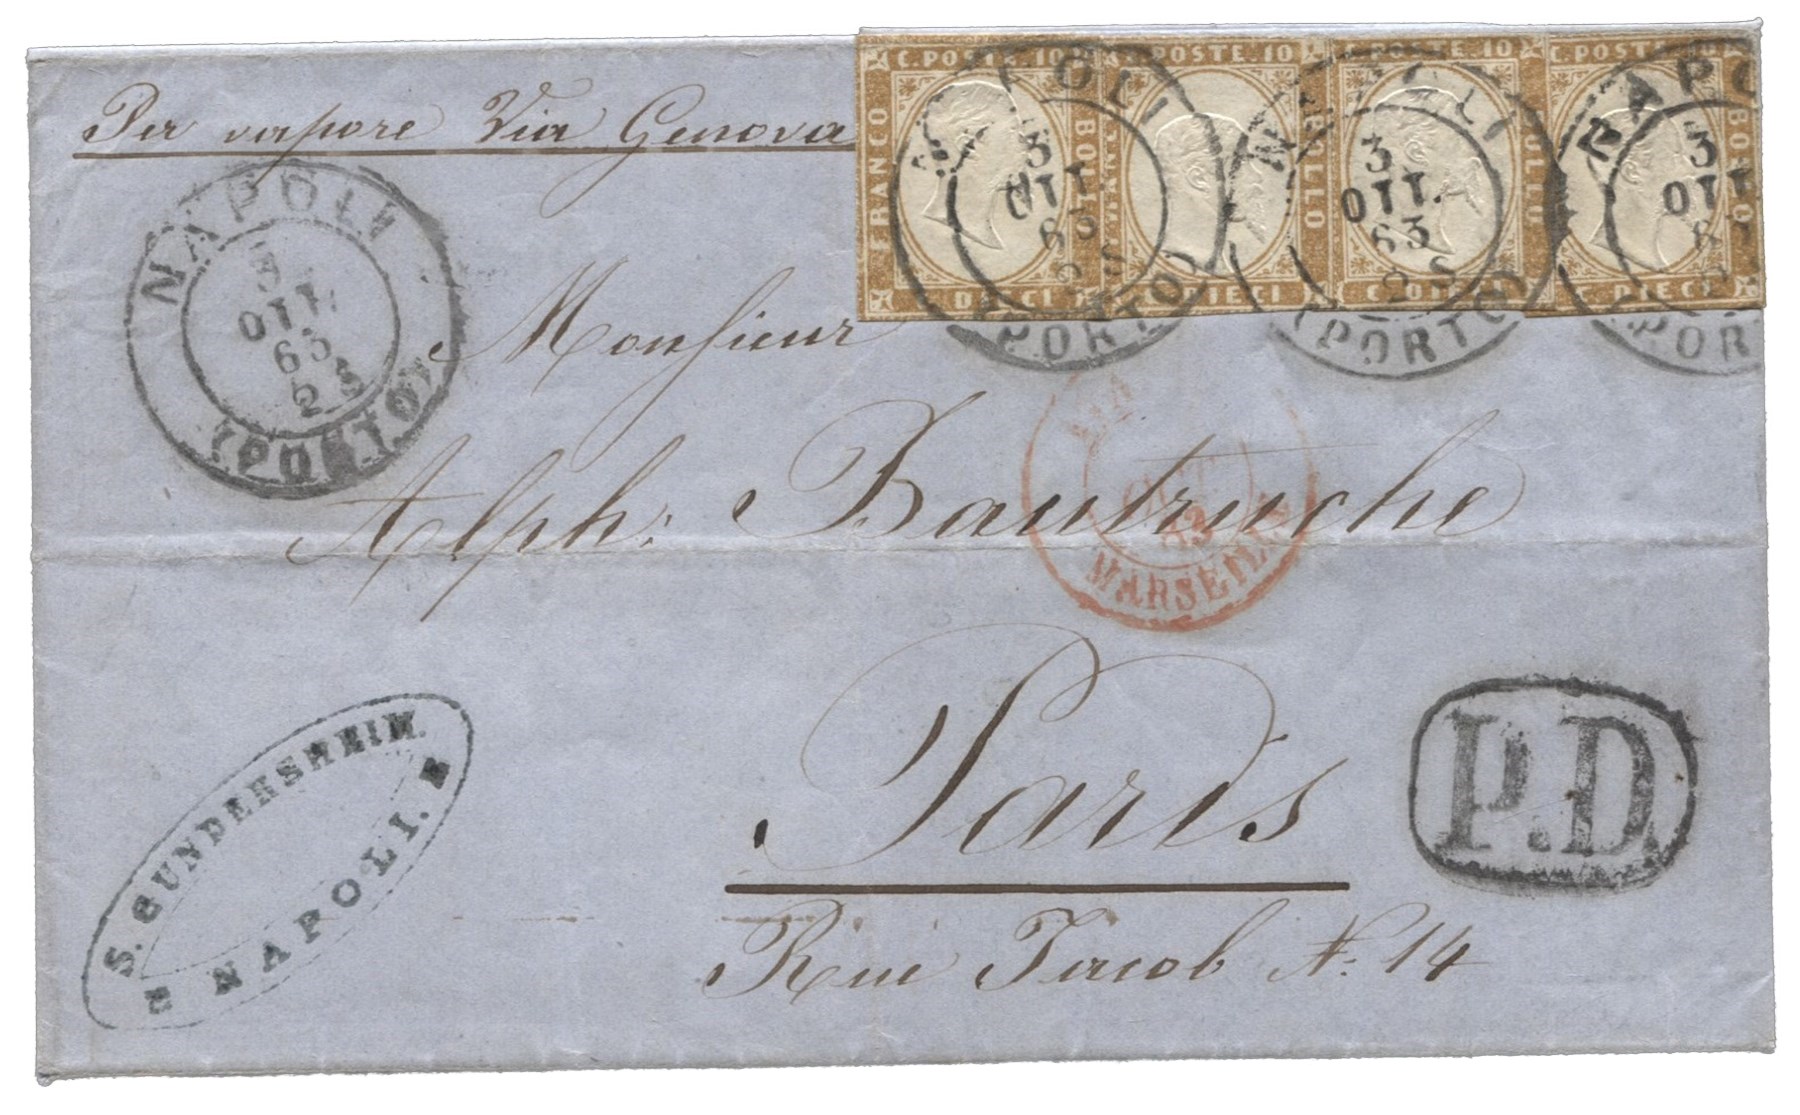 Per vapore Via Genova
C. POSTE. 10
FRANCO
BOLLO
C. DIECI
C. POSTE. 10
FRANCO
BOLLO
C. DIECI
C. POSTE 10
BOLLO
C. DIECI
C. POSTE. 10
BOLLO
C. DIECI
NAPOLI
3
OTT.
63
2 S
(PORTO)
NAPOLI
3
OTT.
63
2 S
(PORTO)
NAPOLI
3
OTT.
63
2 S
(PORTO)
NAPO
3
OTT
6
2
(POR
Monsieur
Alph: Bautruche
OCT
63
MARSEILLE
Paris
Rue Jacob No. 14
P.D.
S. GUNDERSHEIM.
NAPOLI.